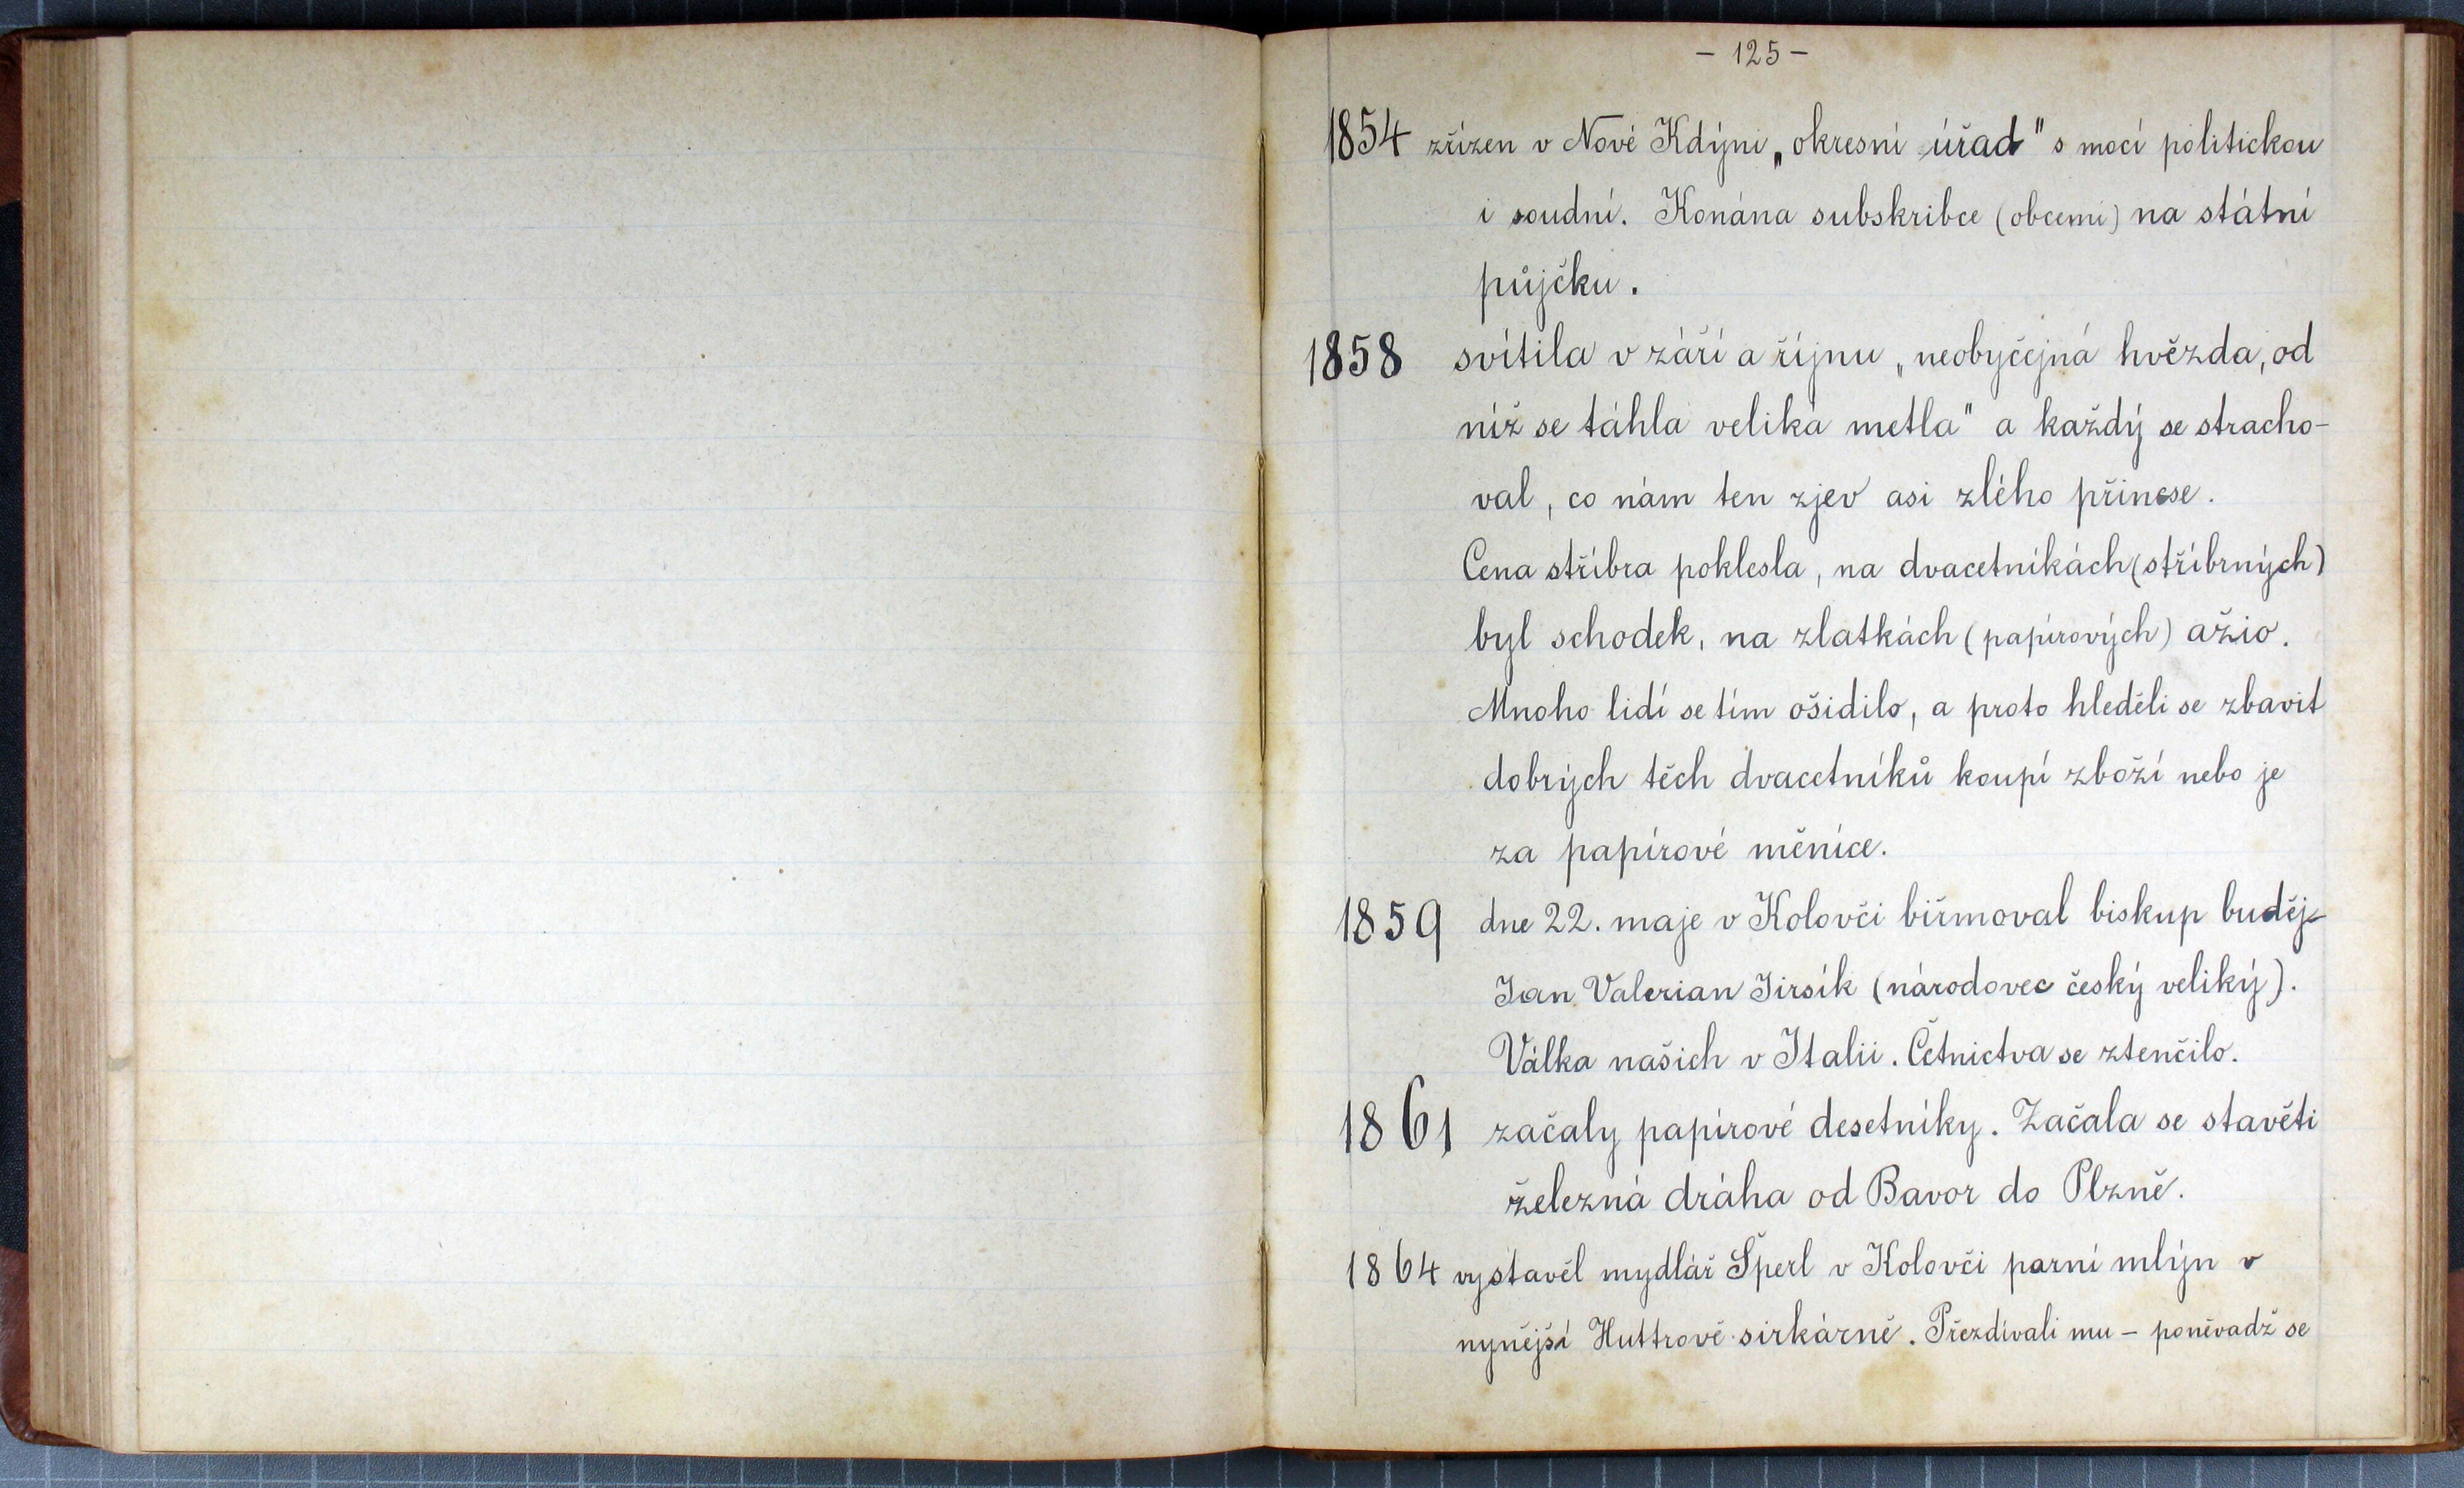 - 125 -
1854 zřízen v Nové Kdýni „okresní úřad" s mocí politickou
i soudní. Konána subskribce (obcemi) na státní
půjčku.
1858 svítila v září a říjnu „neobyčejná hvězda, od
níž se táhla veliká metla" a každý se stracho-
val, co nám ten zjev asi zlého přinese.
Cena stříbra poklesla, na dvacetníkách (stříbrných)
byl schodek, na zlatkách (papírových) ažio.
Mnoho lidí se tím ošidilo, a proto hleděli se zbavit
dobrých těch dvacetníků koupí zboží nebo je
za papírové měníce.
1859 dne 22. maje v Kolovči biřmoval biskup buděj-
Jan Valerian Jirsík (národovec český veliký).
Válka našich v Italii. Četnictva se ztenčilo.
1861 začaly papírové desetníky. Začala se stavěti
železná dráha od Bavor do Plzně.
1864 vystavěl mydlář Šperl v Kolovči parní mlýn v
nynější Huttrově sirkárně. Přezdívali mu – poněvadž se